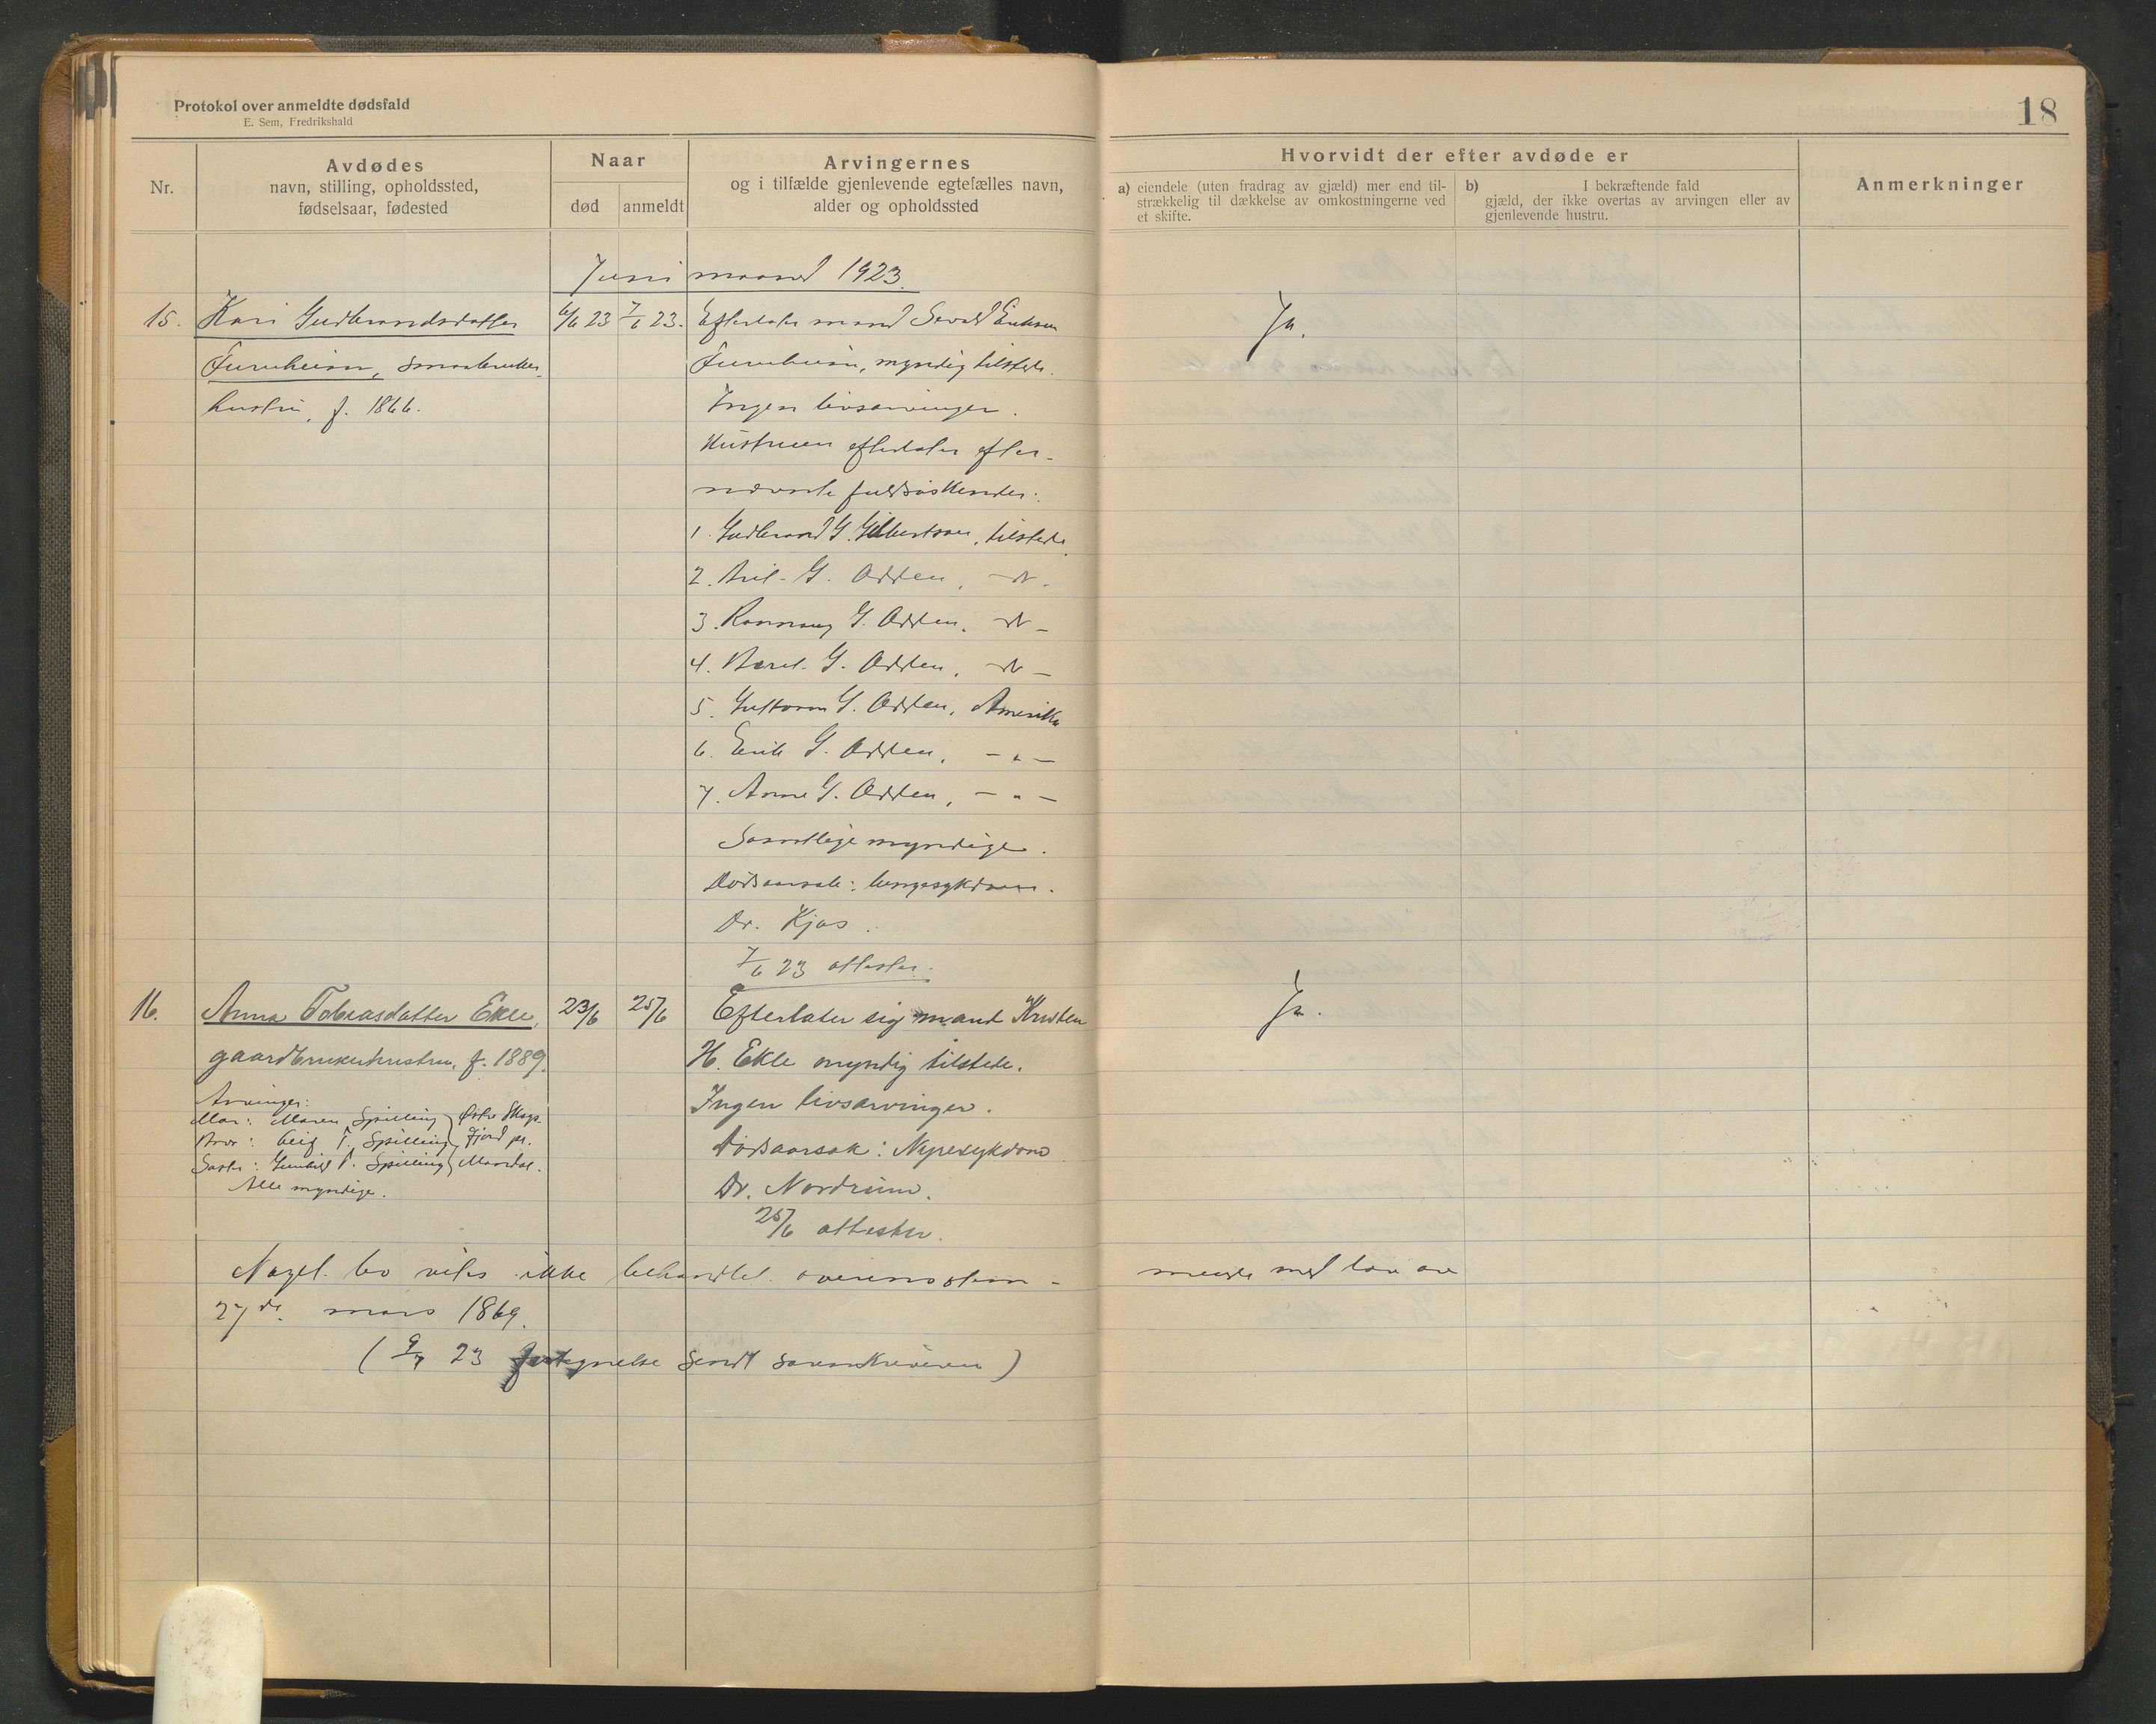 Protokol over anmeldte dødsfald
E. Sem, Fredrikshald
18
Nr.
Avdødes
navn, stilling, opholdssted,
fødselsaar, fødested
Naar
død
anmeldt
Arvingernes
og i tilfælde gjenlevende egtefælles navn,
alder og opholdssted
Hvorvidt der efter avdøde er
a) eiendele (uten fradrag av gjæld) mer end til-
strækkelig til dækkelse av omkostningerne ved
et skifte.
b) I bekræftende fald
gjæld, der ikke overtas av arvingen eller av
gjenlevende hustru.
Anmerkninger
Juni maaned 1923.
15. Kari Gudbrandsdatter 6/6 23 7/6 23. Efterlater mand Sevald Eriksen Ja.
Furuheim, smaabruker- Furuheim, myndig tilstede.
hustru, f. 1866. Ingen livsarvinger.
Hustruen efterlater efter-
nævnte fuldsøskender:
1. Gudbrand G. Gulbertson, tilstede.
2. G. Odden, -"-
3. Rannaug G. Odden, -"-
4. G. Odden, -"-
5. Guttorm G. Odden, Amerika
6. Erik G. Odden, -"-
7. Anne G. Odden, -"-
Samtlige myndige.
Dødsaarsak: lungesykdom.
Dr. Kjos.
7/6 23 attester.
16. Anna Tobiasdatter Ekle, 23/6 25/6 Efterlater sig mand Kristen Ja.
gaardbrukerhustru, f. 1889. H. Ekle myndig tilstede.
Arvinger: Ingen livsarvinger.
Mor: Maren Spilling } Øvre
Bror: T. Spilling } Fjord pr.
Søster: Gunhild T. Spilling } Mandal.
Alle myndige.
Dødsaarsak: Nyresykdom
Dr. Nordrum.
25/6 attester.
bo ikke behandlet overensstem- mende med lov av
27de mars 1869.
(9/7 23 fortegnelse sendt sorenskriveren)